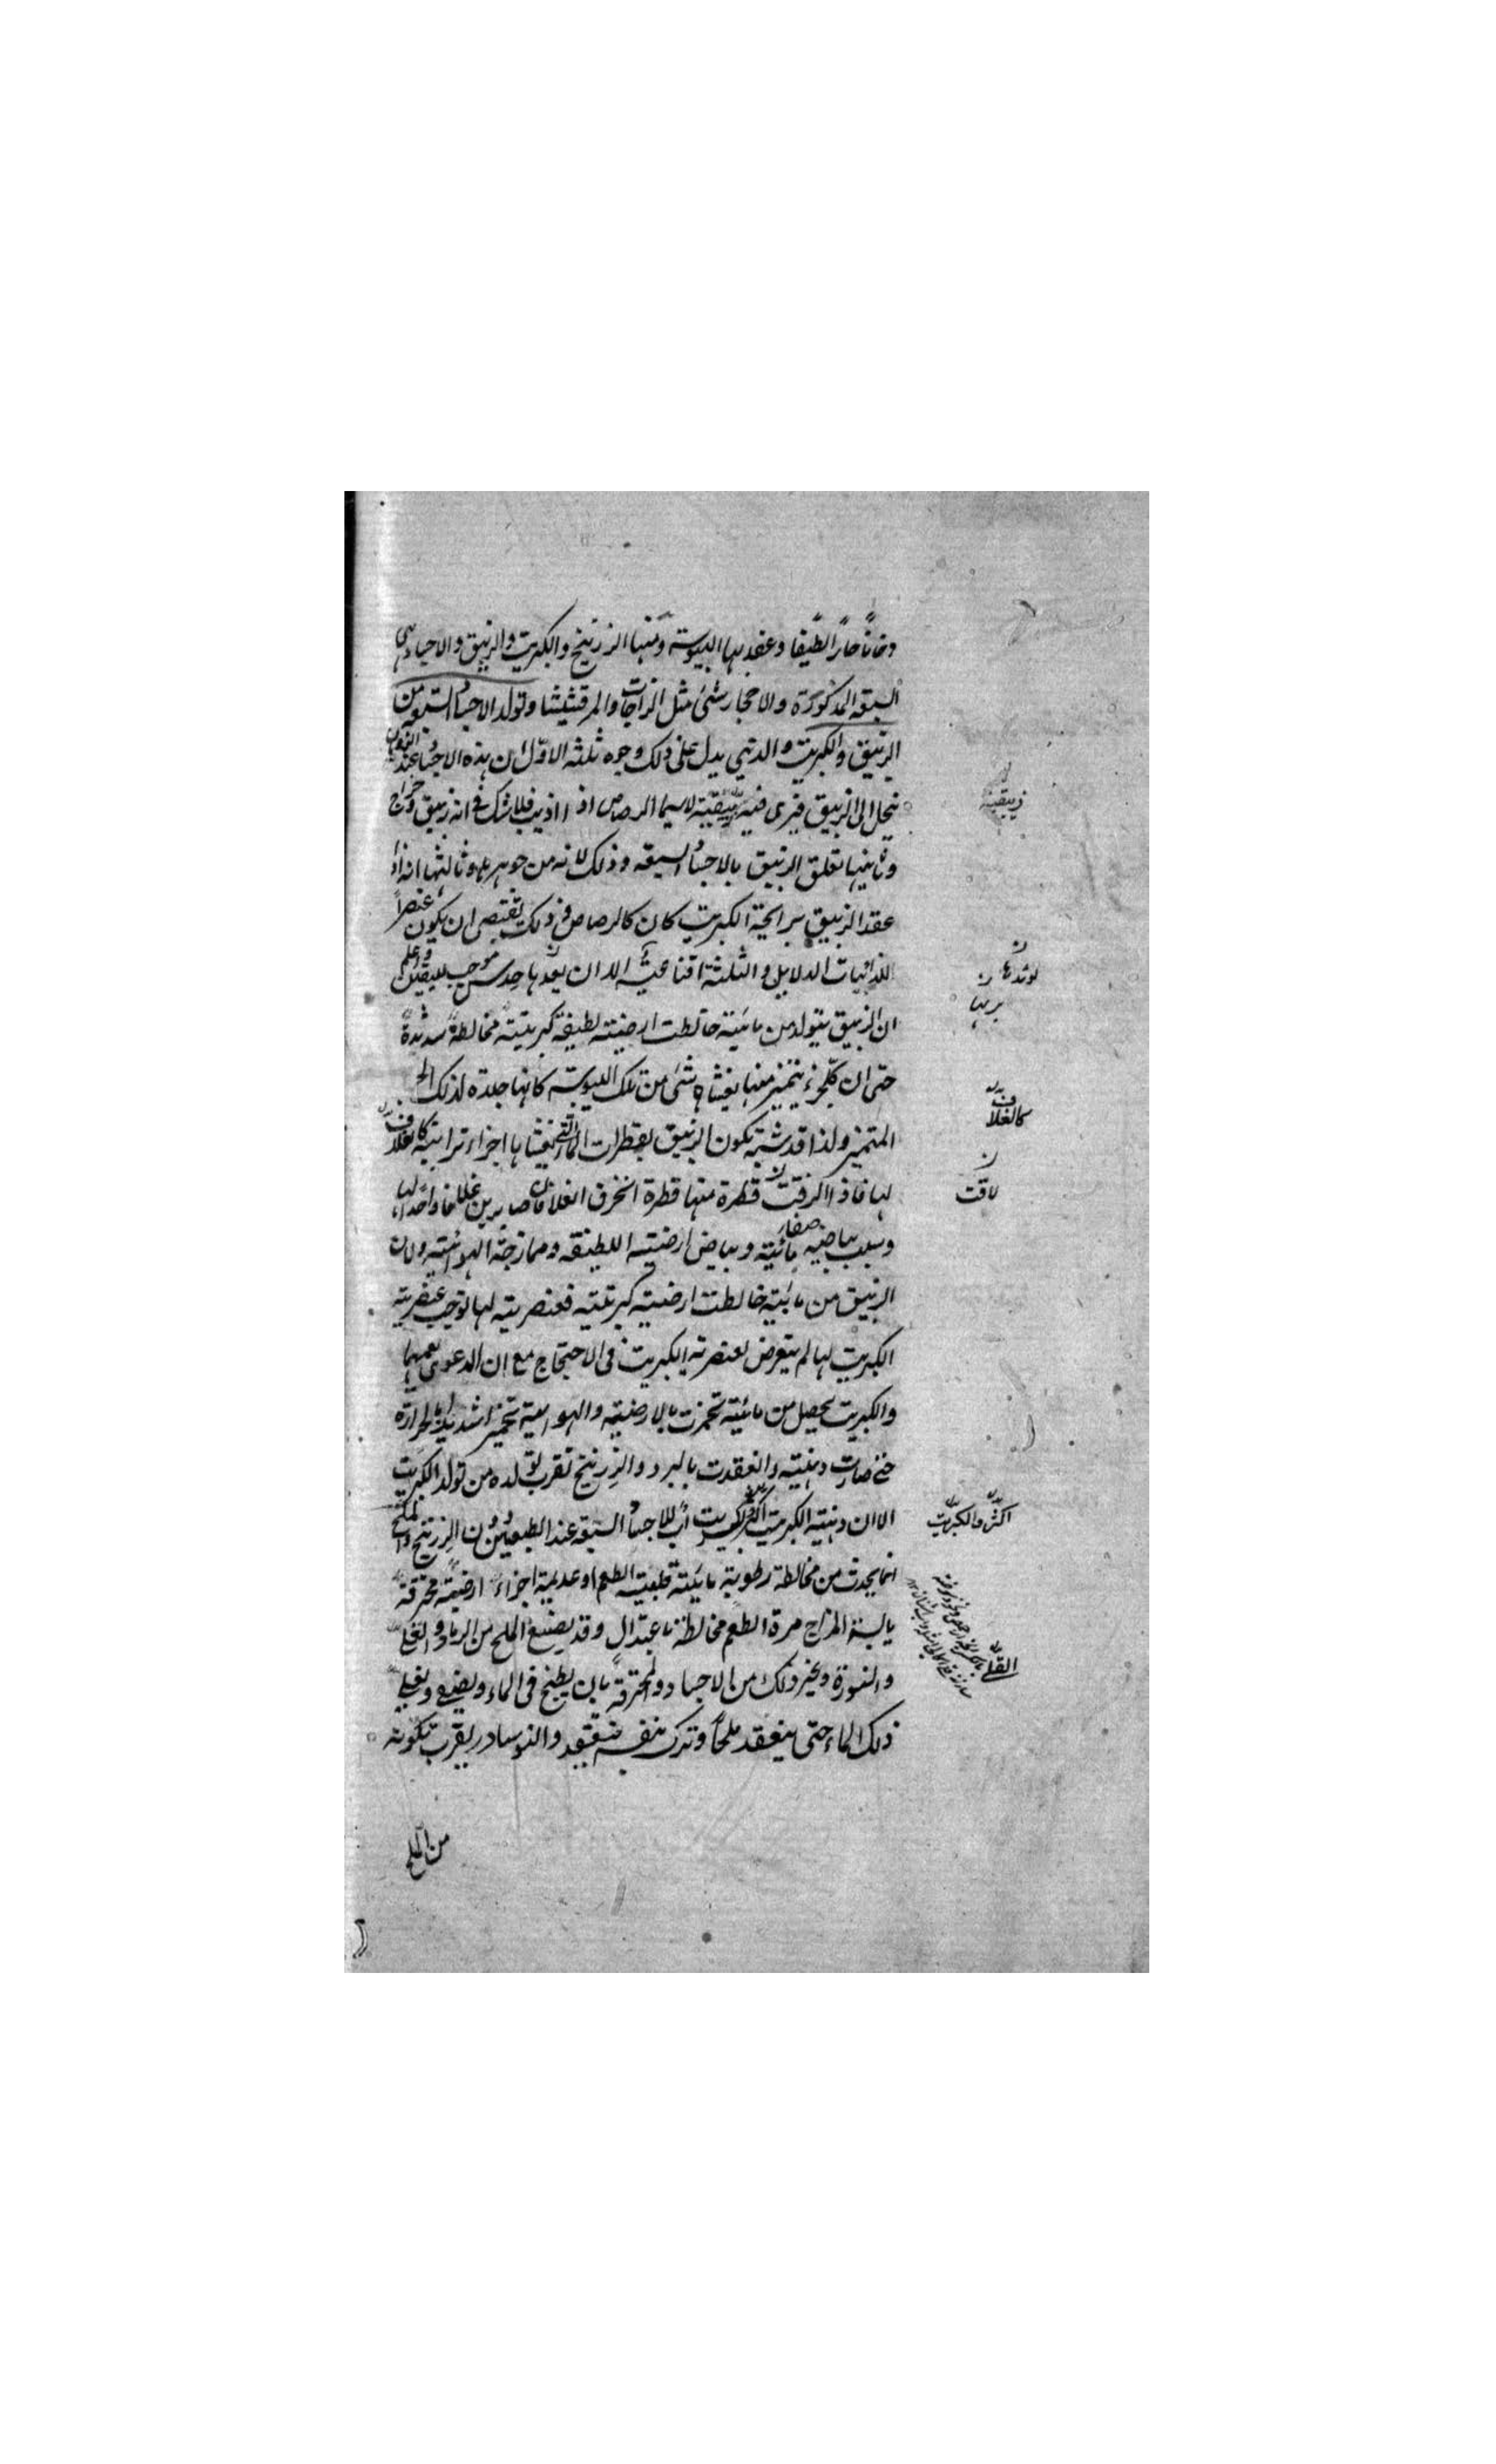 دخانا حارا لطيفا وعقد بها اليبوسة ومنها الزرنيخ والكبريت والزيبق والاجساد هى
السبعة المذكورة والاحجار شئ مثل الزاجات والمرقشيشا وتولد الاجساد السبعة من
الزيبق والكبريت والذى يدل على ذلك وجوه ثلثة الاول ان هذه الاجساد عند الذوبان
تنحل الى الزيبق فيرى فيه زيبقية لاسيما الرصاص اذا اذيب فلا شك فى انه زيبق
وثانيها تعلق الزيبق بالاجساد السبعة وذلك لانه من جوهرها وثالثها انه اذا
عقد الزيبق برايحة الكبريت كان كالرصاص فى ذلك يقتضى ان يكون عنصرا
للذائبات الدلايل والثلثة اقناعية الا ان بعدها حدس موجب لليقين واعلم
ان الزيبق يتولد من مائية خالطت ارضية لطيفة كبريتية مخالطة شديدة
حتى ان كل جزء يتميز منها يغشاه شئ من تلك اليبوسة كانها جلدة لذلك
المتميز ولذا قد شبه تكون الزيبق بقطرات الماء التى تغشاها اجزاء ترابية كالغلاف
لها فاذا لاقت قطرة منها قطرة انخرق الغلافان صايرين غلافا واحدا لها
وسبب بياضه صفاء مائية وبياض ارضيته اللطيفة وممازجة الهوائية ولان
الزيبق من مائية خالطت ارضية كبريتية فعنصريته لها توجب عنصرية
الكبريت لها لم يتعرض لعنصرية الكبريت فى الاحتجاج مع ان الدعوى تعمهما
والكبريت يحصل من مائية تخمرت بالارضية والهوائية تخمرا شديدا بالحرارة
حتى صارت دهنية وانعقدت بالبرد والزرنيخ تقرب تولده من تولد الكبريت
الا ان دهنية الكبريت اكثر والكبريت اب للاجساد السبعة عند الطبعيين دون الزرنيخ والملح
انما يحدث من مخالطة رطوبة مائية قليلة الطعم او عديمة اجزاء ارضية محترقة
يابسة المزاج مرة الطعم مخالطة باعتدال وقد يصنع الملح من الرماد والقلى
والنورة وغير ذلك من الاجساد والمحترقة بان يطبخ فى الماء ويصفى ويغلى
ذلك الماء حتى ينعقد ملحا وترك بنفسه فينعقد والنوسادر يقرب تكونه
من الملح
زيبقية
كالغلاف
لاقت
اكثر والكبريت
القلى